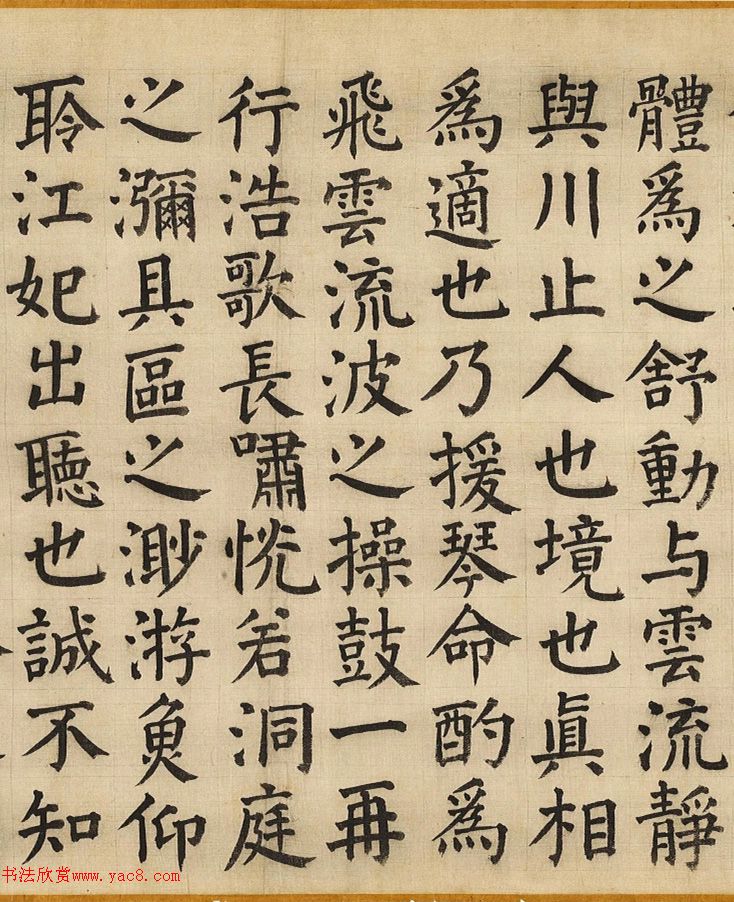 體爲之舒動与雲流靜
與川止人也境也真相
爲適也乃援琴命酌爲
飛雲流波之操鼓一再
行浩歌長嘯恍若洞庭
之瀰具區之渺游魚仰
聆江妃出聽也誠不知
书法欣赏www.yac8.com